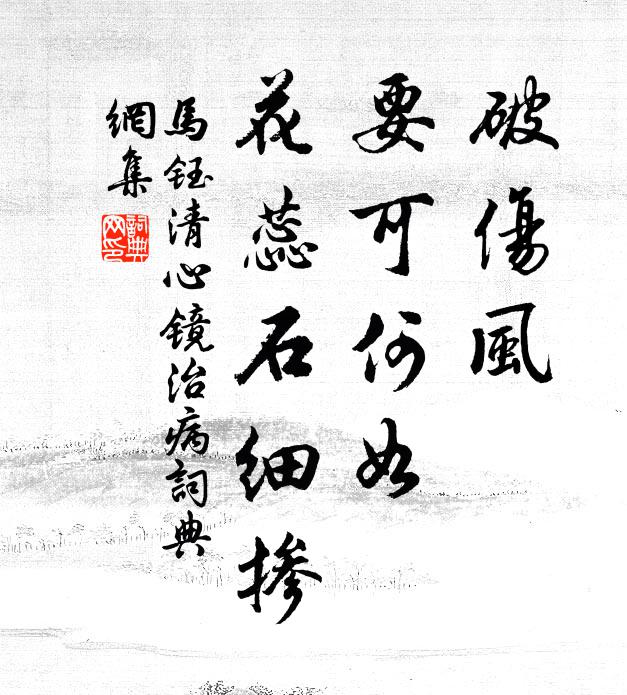 破傷風
要可何如
花蕊石細摻
馬鈺清心镜治病詞典
網集
詞典
网印